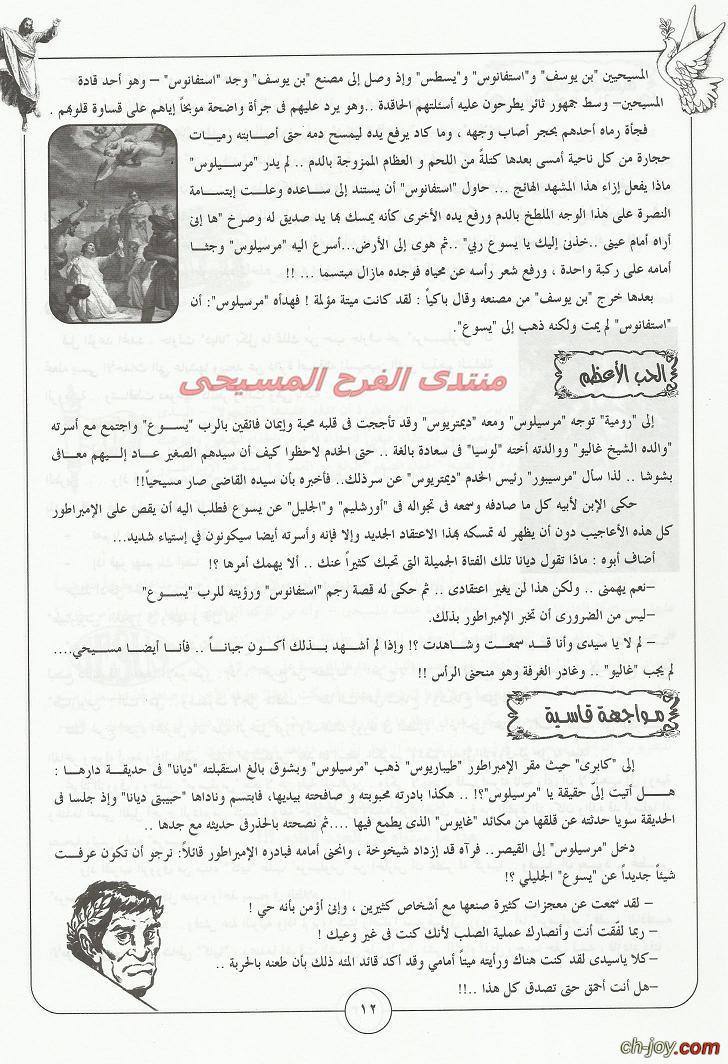 المسيحيين "بن يوسف" و"استفانوس" و"يسطس" وإذ وصل إلى مصنع "بن يوسف" وجد "استفانوس" – وهو أحد قادة
المسيحين– وسط جمهور ثائر يطرحون عليه أسئلتهم الحاقدة ..وهو يرد عليهم فى جرأة واضحة موبخاً إياهم على قساوة قلوبهم .
فجأة رماه أحدهم بحجر أصاب وجهه ، وما كاد يرفع يده ليمسح دمه حتى أصابته رميات
حجارة من كل ناحية أمسى بعدها كتلةً من اللحم و العظام الممزوجة بالدم .. لم يدر "مرسيلوس"
ماذا يفعل إزاء هذا المشهد الهائج ... حاول "استفانوس" أن يستند إلى ساعده وعلت إبتسامة
النصرة على هذا الوجه الملطخ بالدم ورفع يده الأخرى كأنه يمسك بها يد صديق له وصرخ "ها إنى
أراه أمام عينى ..خذنى إليك يا يسوع ربي" ..ثم هوى إلى الأرض...أسرع اليه "مرسيلوس" وجثا
أمامه على ركبة واحدة ، ورفع شعر رأسه عن محياه فوجده مازال مبتسما ... !!
بعدها خرج "بن يوسف" من مصنعه وقال باكياً : لقد كانت ميتة مؤلمة ! فهدأه "مرسيلوس": أن
"استفانوس" لم يمت ولكنه ذهب إلى "يسوع".
منتدى الفرح المسيحى
الحب الأعظم
إلى "رومية" توجه "مرسيلوس" ومعه "ديمتريوس" وقد تأججت فى قلبه محبة وإيمان فائقين بالرب "يسوع" واجتمع مع أسرته
"والده الشيخ غاليو" ووالدته أخته "لوسيا" فى سعادة بالغة .. حتى الخدم لاحظوا كيف أن سيدهم الصغير عاد إليهم معافى
بشوشا .. لذا سأل "مرسيبور" رئيس الخدم "ديمتريوس" عن سرذلك.. فأخبره بأن سيده القاضى صار مسيحياً!!
حكى الإبن لأبيه كل ما صادفه وسمعه فى تجواله فى "أورشليم" و"الجليل" عن يسوع فطلب اليه أن يقص على الإمبراطور
كل هذه الأعاجيب دون أن يظهر له تمسكه بهذا الاعتقاد الجديد وإلا فإنه وأسرته أيضا سيكونون في إستياء شديد...
أضاف أبوه : ماذا تقول ديانا تلك الفتاة الجميلة التى تحبك كثيراً عنك .. ألا يهمك أمرها ؟!
–نعم يهمنى .. ولكن هذا لن يغير اعتقادى .. ثم حكى له قصة رجم "استفانوس" ورؤيته للرب "يسوع"
–ليس من الضرورى أن تخبر الإمبراطور بذلك.
– لم لا يا سيدى وأنا قد سمعت وشاهدت ؟! وإذا لم أشهد بذلك أكون جباناً .. فأنا أيضا مسيحي....
لم يجب "غاليو" .. وغادر الغرفة وهو منحنى الرأس !!
مواجهة قاسية
إلى "كابرى" حيث مقر الإمبراطور "طيباريوس" ذهب "مرسيلوس" وبشوق بالغ استقبلته "ديانا" فى حديقة دارها :
هل أتيت إلىّ حقيقة يا "مرسيلوس"؟! .. هكذا بادرته محبوبته و صافحته بيديها، فابتسم وناداها "حبيبتى ديانا" وإذ جلسا فى
الحديقة سويا حدثته عن قلقها من مكائد "غايوس" الذى يطمع فيها ....ثم نصحته بالحذرفى حديثه مع جدها ..
دخل "مرسيلوس" إلى القيصر.. فرآه قد إزداد شيخوخة ، وانحنى أمامه فبادره الإمبراطور قائلاً: نرجو أن تكون عرفت
شيئا جديداً عن "يسوع" الجليلي ؟!
– لقد سمعت عن معجزات كثيرة صنعها مع أشخاص كثيرين ، وإنى أؤمن بأنه حي !
– ربما لفقت أنت وأنصارك عملية الصلب لأنك كنت فى غير وعيك !
–كلا ياسيدى لقد كنت هناك ورأيته ميتاً أمامي وقد أكد قائد المئه ذلك بأن طعنه بالحربة ..
–هل أنت أحمق حتى تصدق كل هذا ..!!
١٢
ch-joy.com